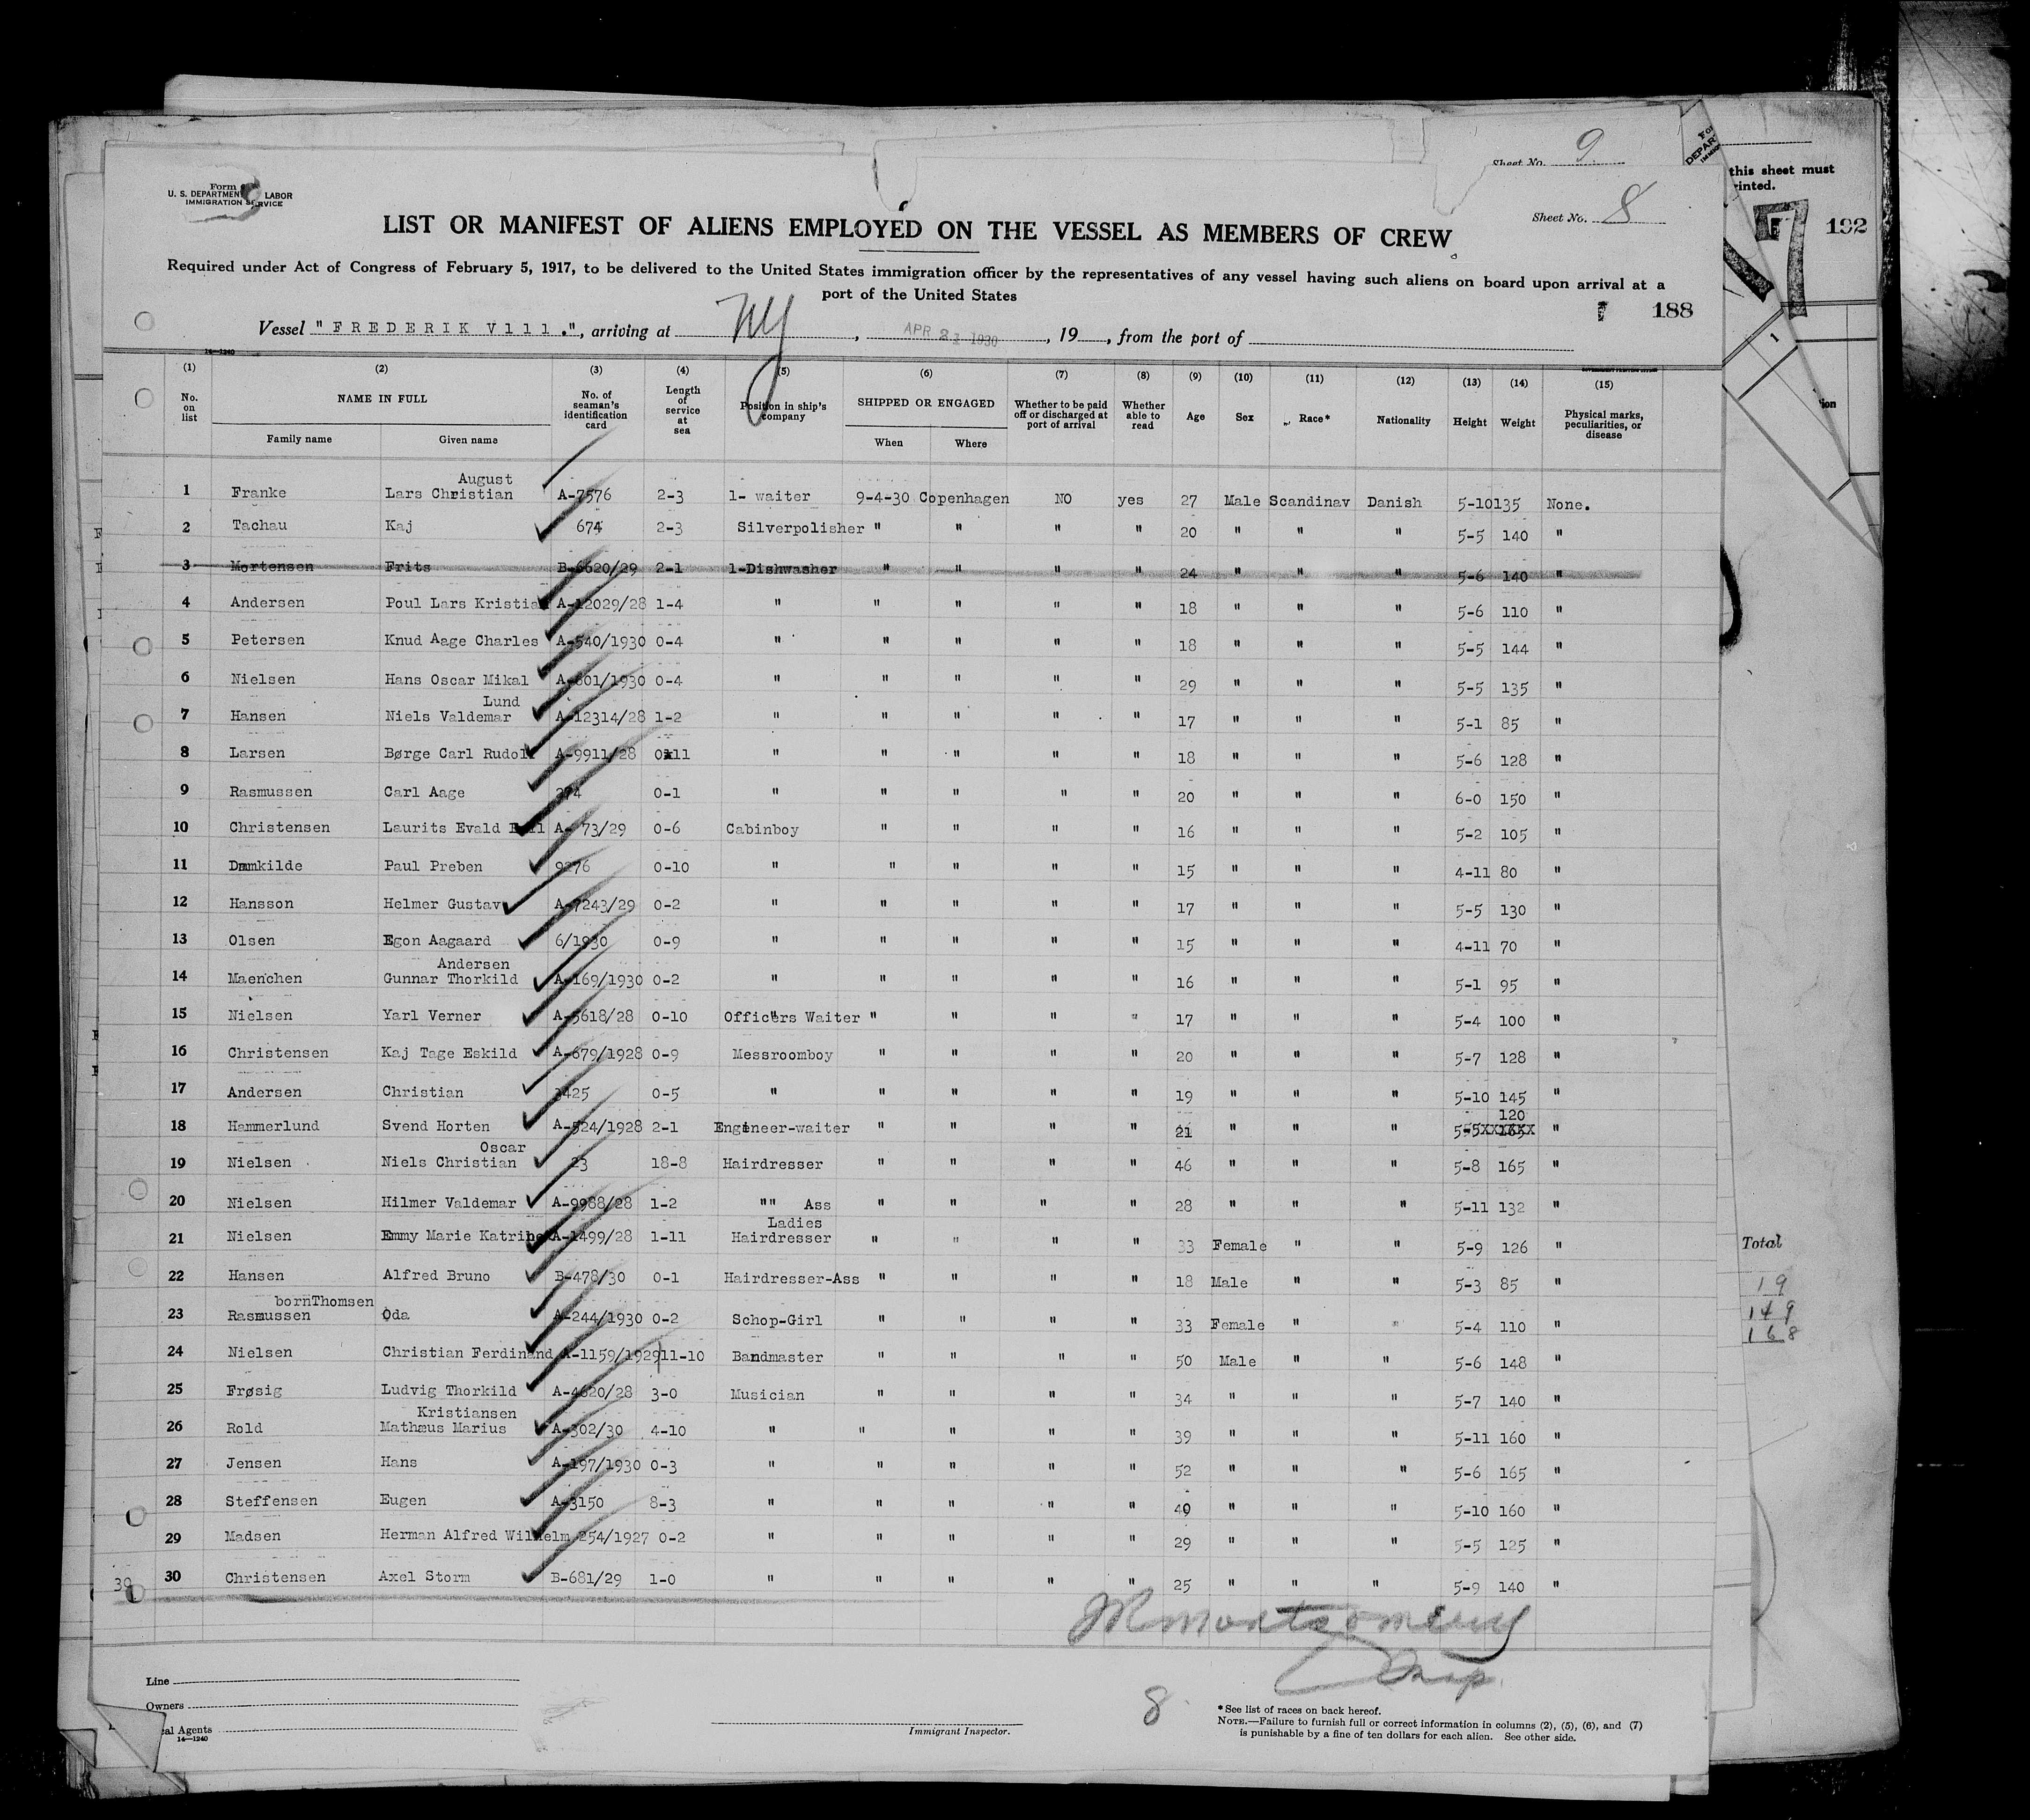 Sheet No. 9
this sheet must
rinted.
Form
U. S. DEPARTMENT LABOR
IMMIGRATION SERVICE
Sheet No. 8
192
LIST OR MANIFEST OF ALIENS EMPLOYED ON THE VESSEL AS MEMBERS OF CREW
Required under Act of Congress of February 5, 1917, to be delivered to the United States immigration officer by the representatives of any vessel having such aliens on board upon arrival at a
port of the United States
188
Vessel "FREDERIK V111.", arriving at NY, APR 21 1930, 19, from the port of
14—1240
(1) (2) (3) (4) (5) (6) (7) (8) (9) (10) (11) (12) (13) (14) (15)
No. on list NAME IN FULL No. of seaman's identification card Length of service at sea Position in ship's company SHIPPED OR ENGAGED Whether to be paid off or discharged at port of arrival Whether able to read Age Sex Race* Nationality Height Weight Physical marks, peculiarities, or disease
Family name Given name When Where
August
1 Franke Lars Christian A-7576 2-3 1- waiter 9-4-30 Copenhagen NO yes 27 Male Scandinav Danish 5-10 135 None.
2 Tachau Kaj 674 2-3 Silverpolisher " " " " 20 " " " 5-5 140 "
3 Mortensen Frits B-6620/29 2-1 1-Dishwasher " " " " 24 " " " 5-6 140 "
4 Andersen Poul Lars Kristian A-12029/28 1-4 " " " " " 18 " " " 5-6 110 "
5 Petersen Knud Aage Charles A-540/1930 0-4 " " " " " 18 " " " 5-5 144 "
6 Nielsen Hans Oscar Mikal A-601/1930 0-4 " " " " " 29 " " " 5-5 135 "
Lund
7 Hansen Niels Valdemar A-12314/28 1-2 " " " " " 17 " " " 5-1 85 "
8 Larsen Børge Carl Rudolf A-9911/28 0-11 " " " " " 18 " " " 5-6 128 "
9 Rasmussen Carl Aage 274 0-1 " " " " " 20 " " " 6-0 150 "
10 Christensen Laurits Evald A- 73/29 0-6 Cabinboy " " " " 16 " " " 5-2 105 "
11 Damkilde Paul Preben 9276 0-10 " " " " " 15 " " " 4-11 80 "
12 Hansson Helmer Gustav A-7243/29 0-2 " " " " " 17 " " " 5-5 130 "
13 Olsen Egon Aagaard 6/1930 0-9 " " " " " 15 " " " 4-11 70 "
Andersen
14 Maenchen Gunnar Thorkild A-169/1930 0-2 " " " " " 16 " " " 5-1 95 "
15 Nielsen Yarl Verner A-5618/28 0-10 Officers Waiter " " " " 17 " " " 5-4 100 "
16 Christensen Kaj Tage Eskild A-679/1928 0-9 Messroomboy " " " " 20 " " " 5-7 128 "
17 Andersen Christian 3425 0-5 " " " " " 19 " " " 5-10 145 "
120
18 Hammerlund Svend Horten A-524/1928 2-1 Engineer-waiter " " " " 21 " " " 5-5 "
Oscar
19 Nielsen Niels Christian 23 18-8 Hairdresser " " " " 46 " " " 5-8 165 "
20 Nielsen Hilmer Valdemar A-9988/28 1-2 "" Ass " " " " 28 " " " 5-11 132 "
Ladies
21 Nielsen Emmy Marie Katrine A-1499/28 1-11 Hairdresser " " " " 33 Female " " 5-9 126 "
22 Hansen Alfred Bruno B-478/30 0-1 Hairdresser-Ass " " " " 18 Male " " 5-3 85 "
bornThomsen
23 Rasmussen Oda A-244/1930 0-2 Schop-Girl " " " " 33 Female " " 5-4 110 "
24 Nielsen Christian Ferdinand A-1159/1929 11-10 Bandmaster " " " " 50 Male " " 5-6 148 "
25 Frøsig Ludvig Thorkild A-4620/28 3-0 Musician " " " " 34 " " " 5-7 140 "
Kristiansen
26 Rold Mathæus Marius A-302/30 4-10 " " " " " 39 " " " 5-11 160 "
27 Jensen Hans A-197/1930 0-3 " " " " " 52 " " " 5-6 165 "
28 Steffensen Eugen A-3150 8-3 " " " " " 49 " " " 5-10 160 "
29 Madsen Herman Alfred Wilhelm 254/1927 0-2 " " " " " 29 " " " 5-5 125 "
30 Christensen Axel Storm B-681/29 1-0 " " " " " 25 " " " 5-9 140 "
30
Total
19
149
168
JR Montgomery
Insp.
Line
Owners
cal Agents
14—1240
Immigrant Inspector.
8
*See list of races on back hereof.
NOTE.—Failure to furnish full or correct information in columns (2), (5), (6), and (7)
is punishable by a fine of ten dollars for each alien. See other side.